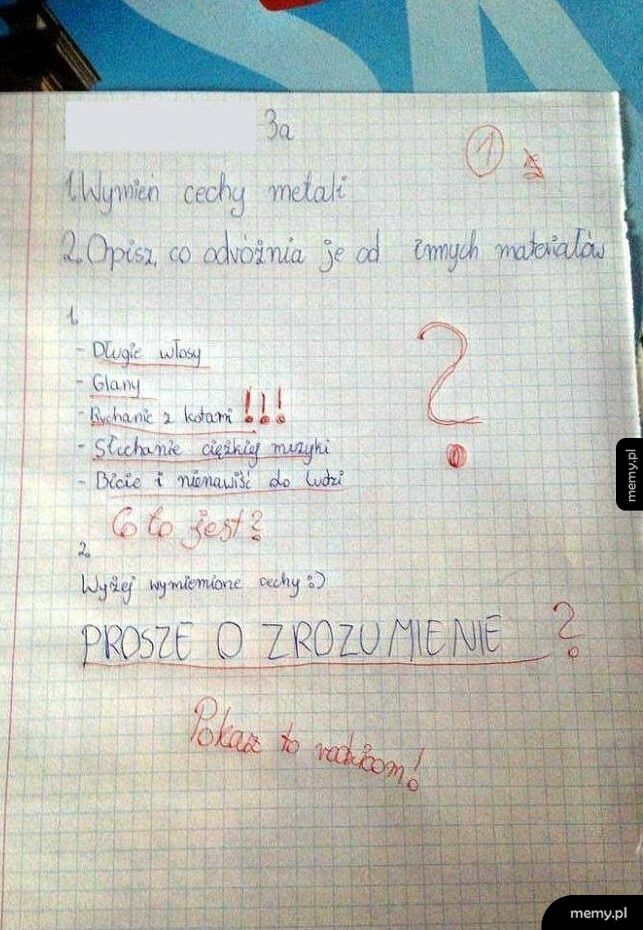 3a
1
1. Wymień cechy metali
2. Opisz, co odróżnia je od innych materiałów
1.
- Długie włosy
- Glany
- Ruchanie z kotami !!!
?
- Słuchanie ciężkiej muzyki
- Bicie i nienawiść do ludzi
Co to jest?
2.
Wyżej wymienione cechy :)
PROSZE O ZROZUMIENIE ?
Pokaż to rodzicom!
memy.pl
memy.pl